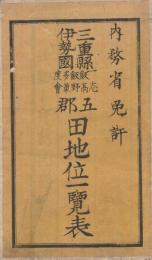 內務省免許
三重縣
伊勢國
飯高
飯野
多氣
度會
五郡
田地位一覽表